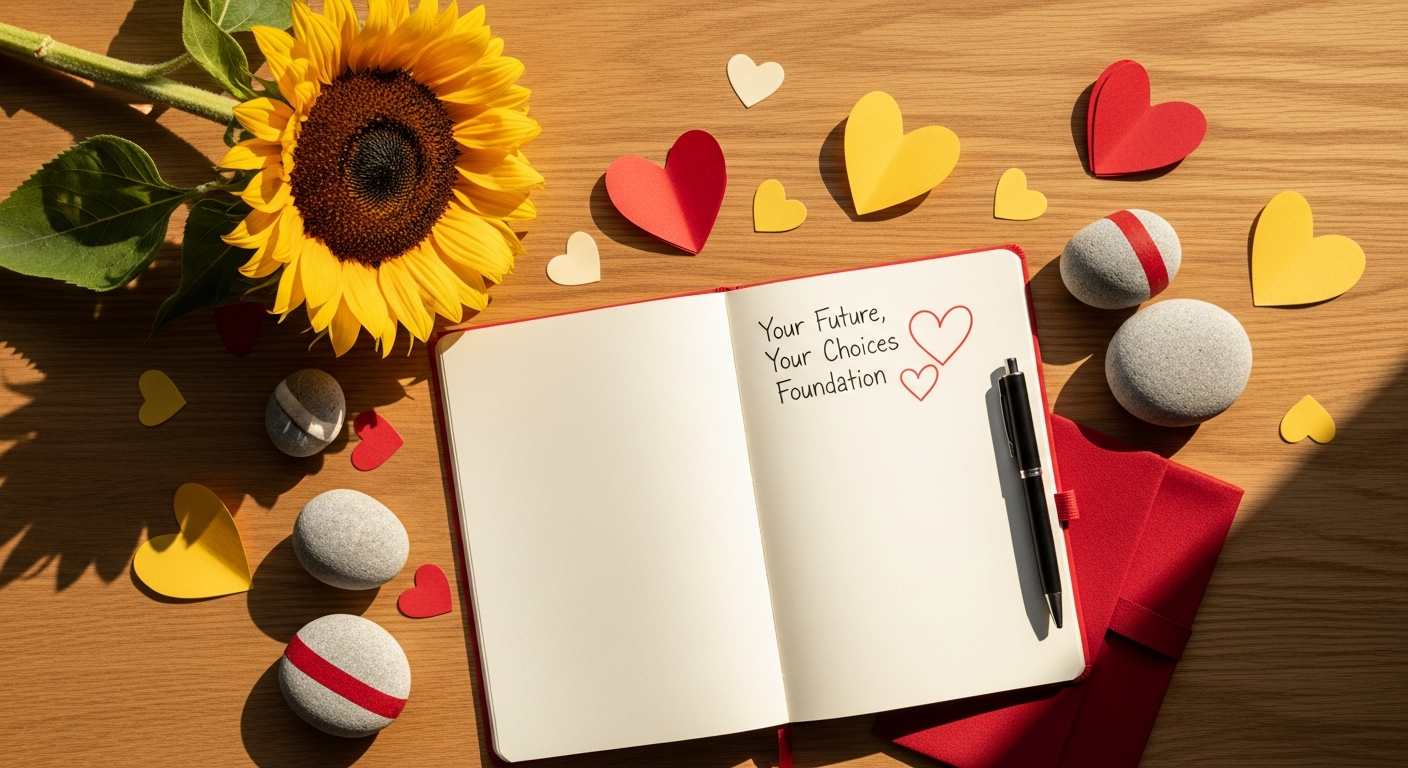 Your Future,
Your Choices
Foundation